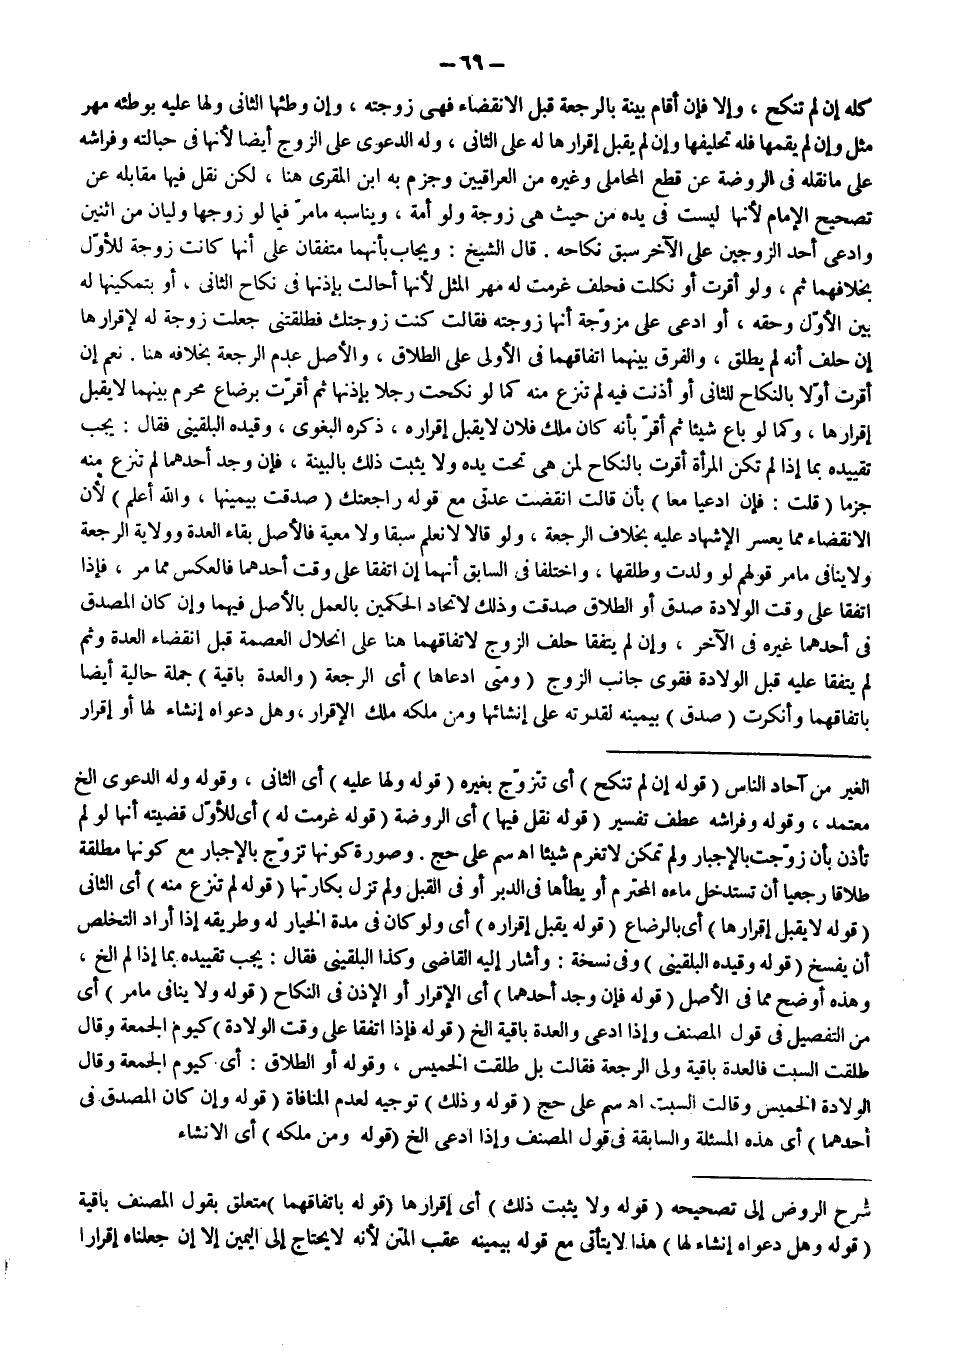 — ٦٩ —
كله إن لم تنكح ، وإلا فإن أقام بينة بالرجعة قبل الانقضاء فهى زوجته ، وإن وطئها الثانى ولها عليه بوطئه مهر
مثل وإن لم يقمها فله تحليفها وإن لم يقبل إقرارها له على الثانى ، وله الدعوى على الزوج أيضا لأنها فى حبالته وفراشه
على مانقله فى الروضة عن قطع المحاملى وغيره من العراقيين وجزم به ابن المقرى هنا ، لكن نقل فيها مقابله عن
تصحيح الإمام لأنها ليست فى يده من حيث هى زوجة ولو أمة ، ويناسبه مامرّ فيما لو زوجها وليان من اثنين
وادعى أحد الزوجين على الآخر سبق نكاحه . قال الشيخ : ويجاب بأنهما متفقان على أنها كانت زوجة للأوّل
بخلافهما ثم ، ولو أقرت أو نكلت فحلف غرمت له مهر المثل لأنها أحالت بإذنها فى نكاح الثانى ، أو بتمكينها له
بين الأوّل وحقه ، أو ادعى على مزوّجة أنها زوجته فقالت كنت زوجتك فطلقتنى جعلت زوجة له لإقرارها
إن حلف أنه لم يطلق ، والفرق بينهما اتفاقهما فى الأولى على الطلاق ، والأصل عدم الرجعة بخلافه هنا . نعم إن
أقرت أوّلا بالنكاح للثانى أو أذنت فيه لم تنزع منه كما لو نكحت رجلا بإذنها ثم أقرّت برضاع محرم بينهما لايقبل
إقرارها ، وكما لو باع شيئا ثم أقرّ بأنه كان ملك فلان لايقبل إقراره ، ذكره البغوى ، وقيده البلقينى فقال : يجب
تقييده بما إذا لم تكن المرأة أقرت بالنكاح لمن هى تحت يده ولا يثبت ذلك بالبينة ، فإن وجد أحدهما لم تنزع منه
جزما ( قلت : فإن ادعيا معا ) بأن قالت انقضت عدتى مع قوله راجعتك ( صدقت بيمينها ، والله أعلم ) لأن
الانقضاء مما يعسر الإشهاد عليه بخلاف الرجعة ، ولو قالا لانعلم سبقا ولا معية فالأصل بقاء العدة وولاية الرجعة
ولاينافى مامر قولهم لو ولدت وطلقها ، واختلفا فى السابق أنهما إن اتفقا على وقت أحدهما فالعكس مما مر ، فإذا
اتفقا على وقت الولادة صدق أو الطلاق صدقت وذلك لاتحاد الحكمين بالعمل بالأصل فيهما وإن كان المصدق
فى أحدهما غيره فى الآخر ، وإن لم يتفقا حلف الزوج لاتفاقهما هنا على انحلال العصمة قبل انقضاء العدة وثم
لم يتفقا عليه قبل الولادة فقوى جانب الزوج ( ومتى ادعاها ) أى الرجعة ( والعدة باقية ) جملة حالية أيضا
باتفاقهما وأنكرت ( صدق ) بيمينه لقدرته على إنشائها ومن ملكه ملك الإقرار ، وهل دعواه إنشاء لها أو إقرار
الغير من آحاد الناس ( قوله إن لم تنكح ) أى تتزوّج بغيره ( قوله ولها عليه ) أى الثانى ، وقوله وله الدعوى الخ
معتمد ، وقوله وفراشه عطف تفسير ( قوله نقل فيها ) أى الروضة ( قوله غرمت له ) أى للأوّل قضيته أنها لو لم
تأذن بأن زوّجت بالإجبار ولم تمكن لاتغرم شيئا اهـ سم على حج . وصورة كونها تزوّج بالإجبار مع كونها مطلقة
طلاقا رجعيا أن تستدخل ماءه المحترم أو يطأها فى الدبر أو فى القبل ولم تزل بكارتها ( قوله لم تنزع منه ) أى الثانى
( قوله لايقبل إقرارها ) أى بالرضاع ( قوله يقبل إقراره ) أى ولو كان فى مدة الخيار له وطريقه إذا أراد التخلص
أن يفسخ ( قوله وقيده البلقينى ) وفى نسخة : وأشار إليه القاضى وكذا البلقينى فقال : يجب تقييده بما إذا لم الخ ،
وهذه أوضح مما فى الأصل ( قوله فإن وجد أحدهما ) أى الإقرار أو الإذن فى النكاح ( قوله ولا ينافى مامر ) أى
من التفصيل فى قول المصنف وإذا ادعى والعدة باقية الخ ( قوله فإذا اتفقا على وقت الولادة ) كيوم الجمعة وقال
طلقت السبت فالعدة باقية ولى الرجعة فقالت بل طلقت الخميس ، وقوله أو الطلاق : أى كيوم الجمعة وقال
الولادة الخميس وقالت السبت اهـ سم على حج ( قوله وذلك ) توجيه لعدم المنافاة ( قوله وإن كان المصدق فى
أحدهما ) أى هذه المسئلة والسابقة فى قول المصنف وإذا ادعى الخ ( قوله ومن ملكه ) أى الانشاء
شرح الروض إلى تصحيحه ( قوله ولا يثبت ذلك ) أى إقرارها ( قوله باتفاقهما ) متعلق بقول المصنف باقية
( قوله وهل دعواه إنشاء لها ) هذا لايتأتى مع قوله بيمينه عقب المتن لأنه لايحتاج إلى اليمين إلا إن جعلناه إقرارا